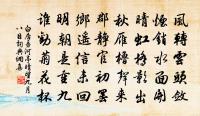 風轉雲頭斂
煙銷水面開
晴虹橋影出
秋雁櫓聲來
郡靜官初罷
鄉遙信未回
明朝是重九
誰勸菊花杯
白居易河亭晴望九月
八日詞典網真